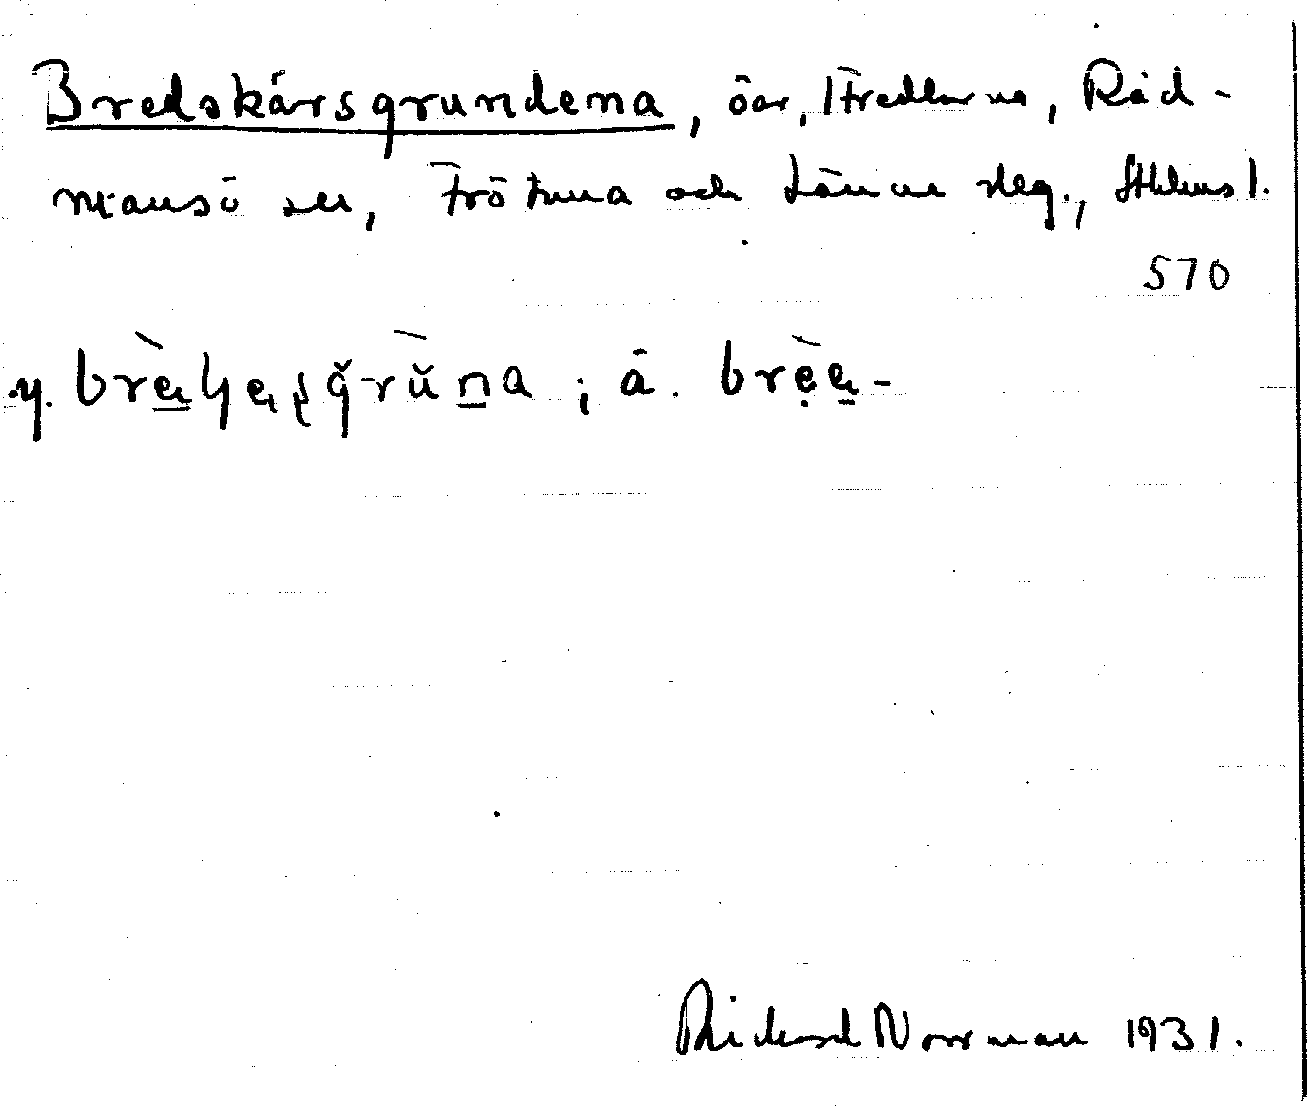 Bredskärsgrundena, öar, Fredlarna, Råd-
mansö sn, Frötuna och Länna slg., Sthlms l.
570
y. brèa̱ɥeʂǧrŭ̀ṉa ; ä. brẹ̀a̱-
Rickard Norrman 1931.